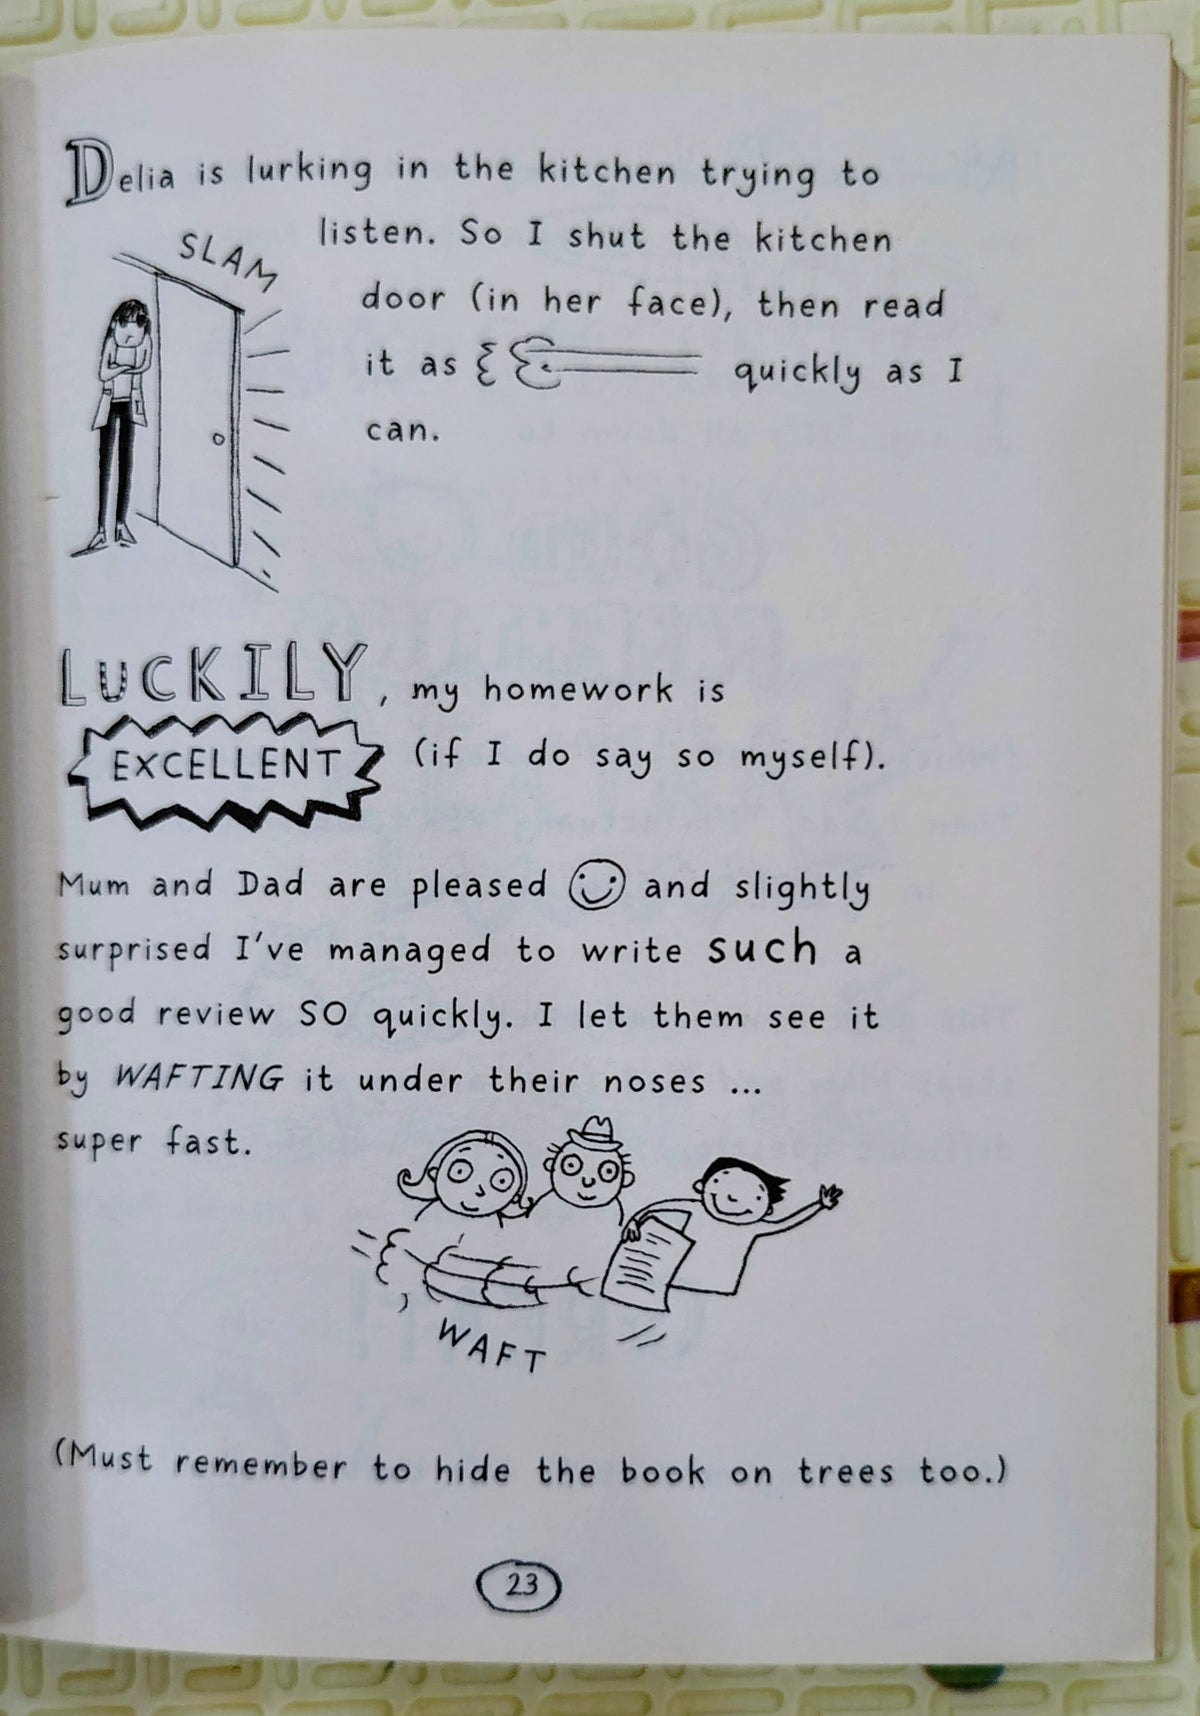 Delia is lurking in the kitchen trying to
SLAM
listen. So I shut the kitchen
door (in her face), then read
it as quickly as I
can.
LUCKILY, my homework is
EXCELLENT (if I do say so myself).
Mum and Dad are pleased and slightly
surprised I've managed to write such a
good review SO quickly. I let them see it
by WAFTING it under their noses ...
super fast.
WAFT
(Must remember to hide the book on trees too.)
23